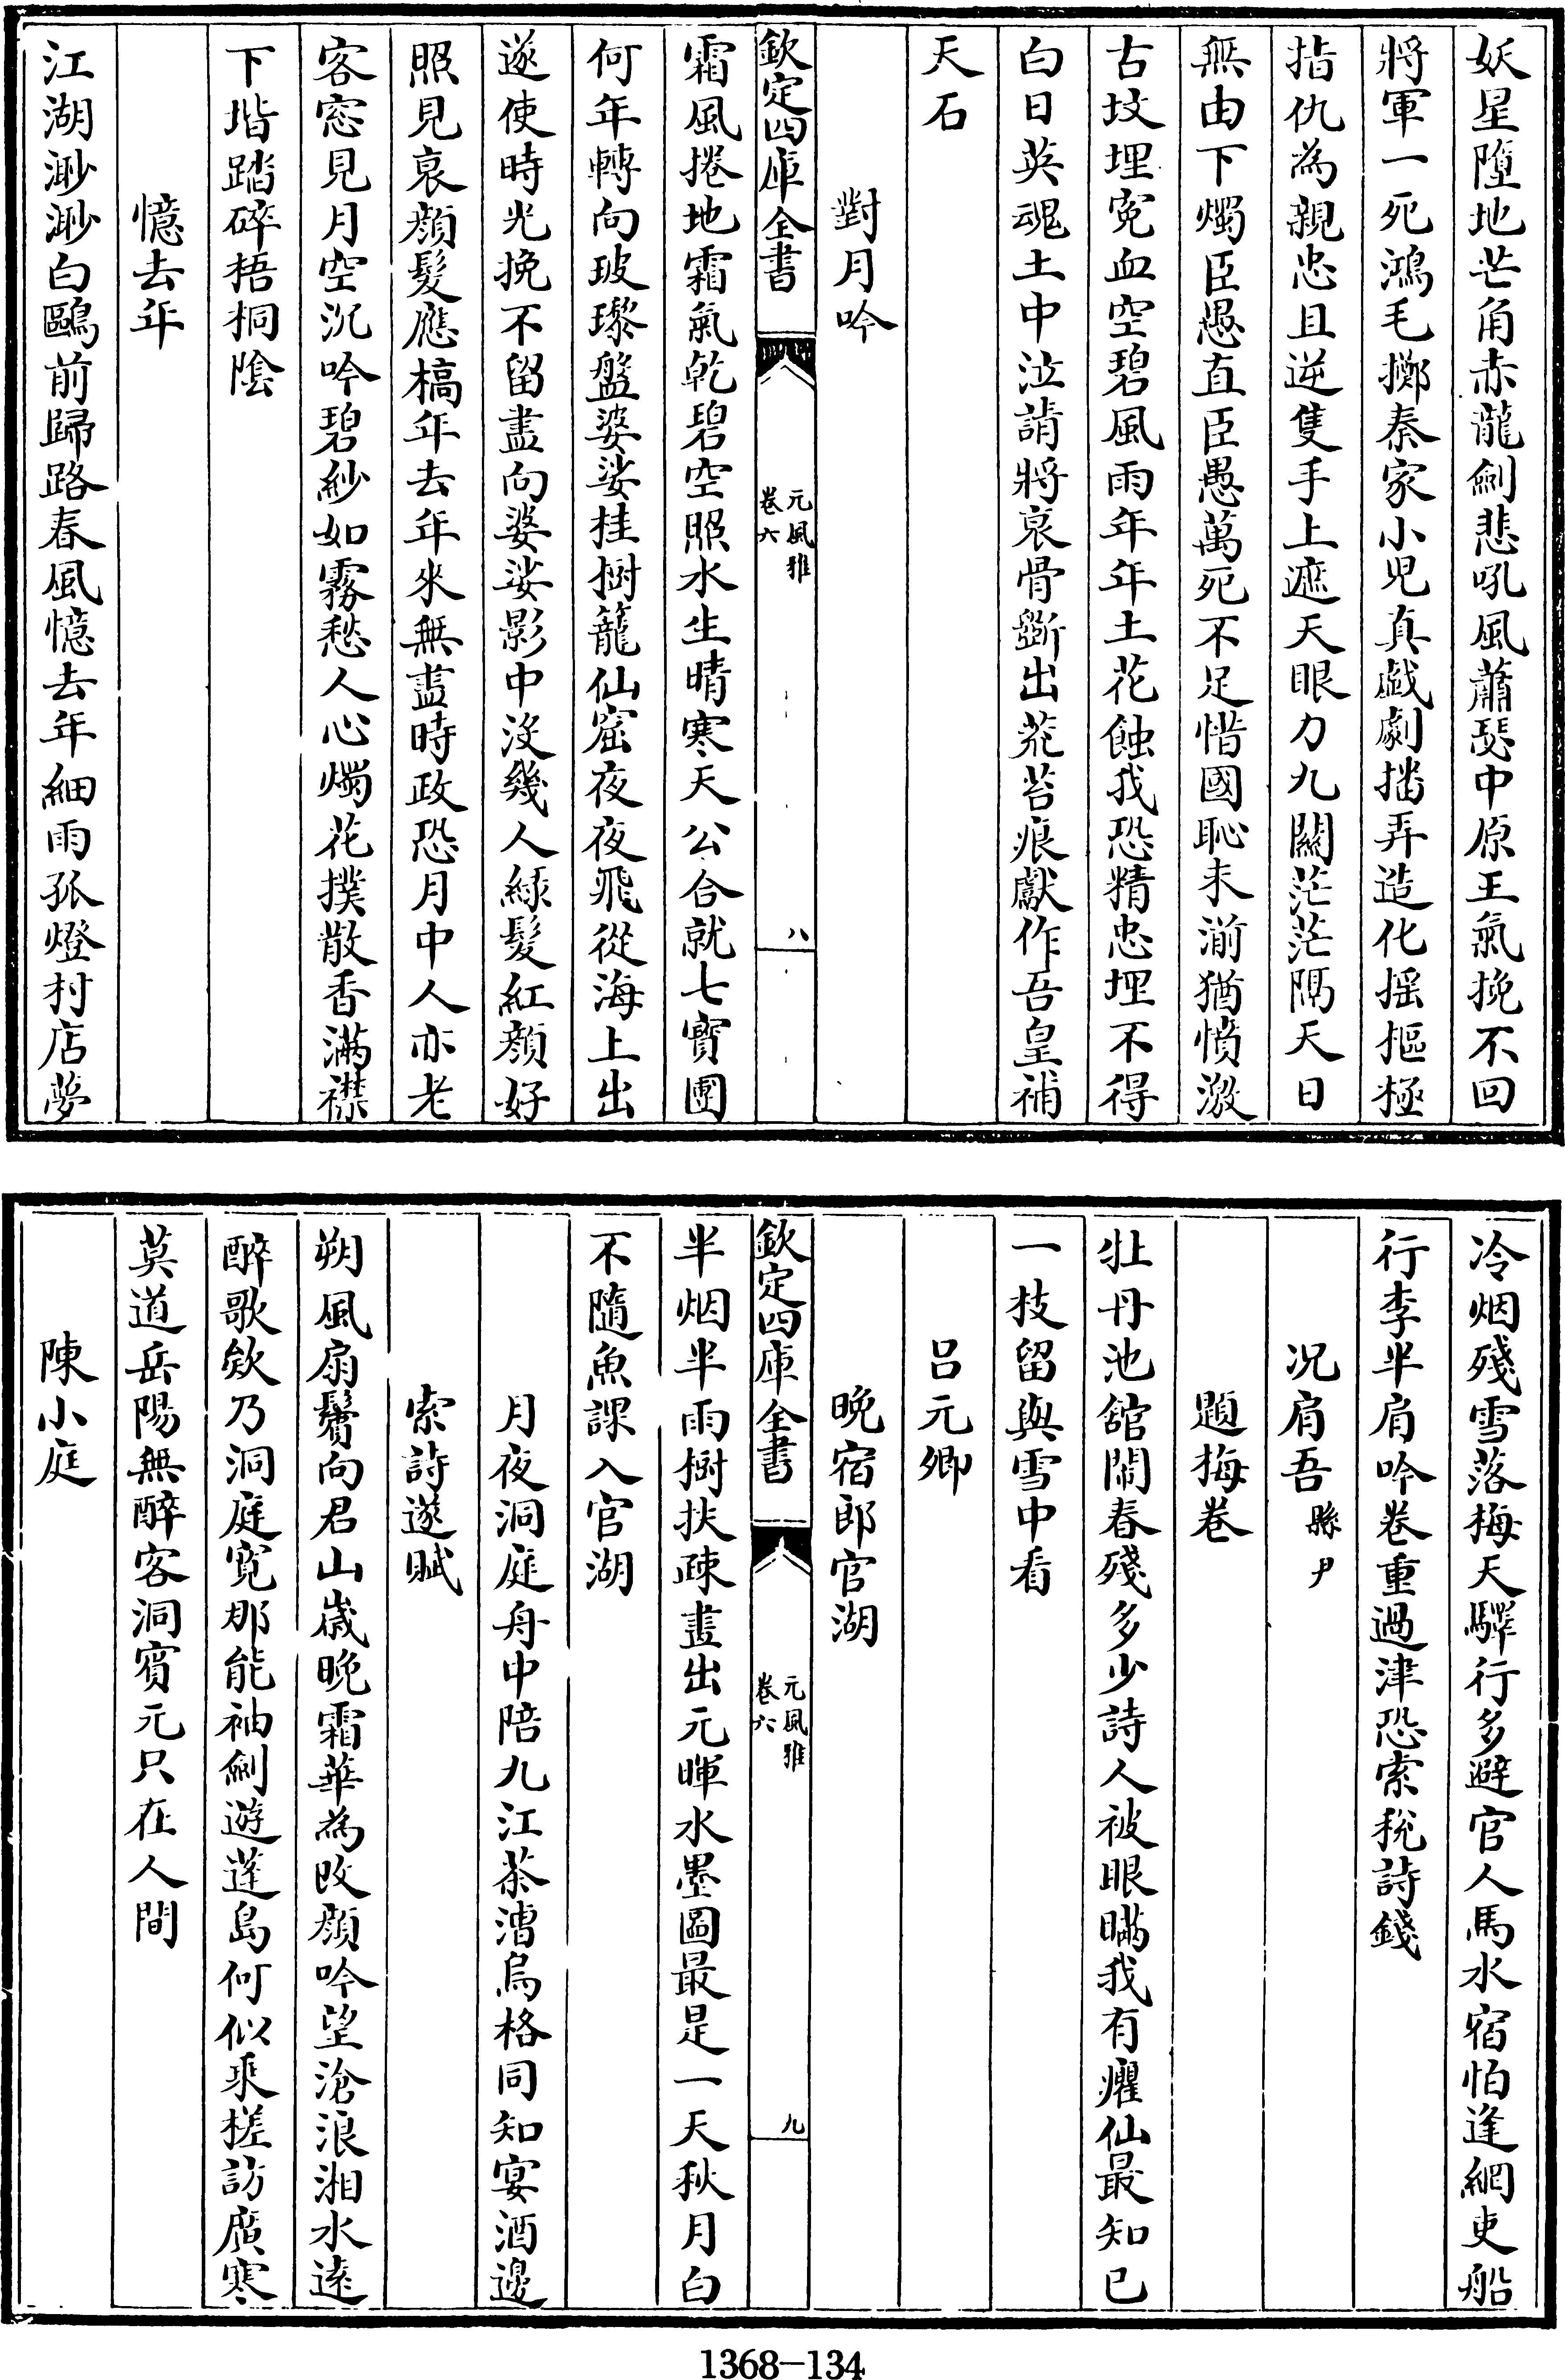 妖星墮地芒角赤龍劍悲吼風蕭瑟中原王氣挽不回
將軍一死鴻毛擲秦家小児真戯劇播弄造化揺摳極
指仇為親忠且逆隻手上遮天眼力九關茫茫隔天日
無由下燭臣愚直臣愚萬死不足惜國恥未湔猶憤激
古坟埋寃血空碧風雨年年土花蝕我恐精忠埋不得
白日英魂土中泣請將哀骨斵出荒苔痕獻作吾皇補
天石
對月吟
欽定四庫全書
元風雅
卷六
八
霜風捲地霜氣乾碧空照水生晴寒天公合就七寳團
何年轉向玻瓈盤婆娑桂樹籠仙窟夜夜飛從海上出
遂使時光挽不留盡向婆娑影中沒幾人緑髮紅顔好
照見哀顔髮應槁年去年來無盡時政恐月中人亦老
客窓見月空沉吟碧紗如霧愁人心燭花撲散香滿襟
下堦踏碎梧桐陰
憶去年
江湖渺渺白鷗前歸路春風憶去年細雨孤燈村店夢
冷烟殘雪落梅天驛行多避官人馬水宿怕逢網吏船
行李半肩吟卷重過津恐索稅詩錢
况肩吾縣尹
題梅卷
牡丹池舘鬧春殘多少詩人被眼瞞我有癯仙最知已
一枝留與雪中看
吕元卿
晚宿郎官湖
欽定四庫全書
元風雅
卷六
九
半烟半雨樹扶疎畫出元暉水墨圖最是一天秋月白
不隨魚課入官湖
月夜洞庭舟中陪九江茶漕烏格同知宴酒邊
索詩遂賦
朔風扇鬢向君山嵗晚霜華為改顔吟望滄浪湘水逺
醉歌欸乃洞庭寛那能袖劍遊蓬島何似乘槎訪廣寒
莫道岳陽無醉客洞賓元只在人間
陳小庭
1368-134